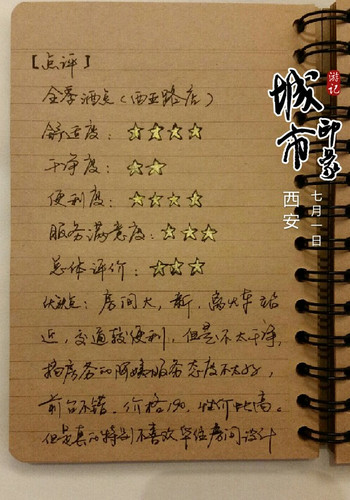 [点评]
全季酒店(西五路店)
舒适度:
干净度:
便利度:
服务满意度:
总体评价:
优缺点:房间大,新,离火车站
近,交通较便利,但是不太干净,
搞房务的阿姨服务态度不太好,
前台不错,价格190,性价比高。
但是真的特别不喜欢单位房间设计
游记
城市印象
西安
七月一日